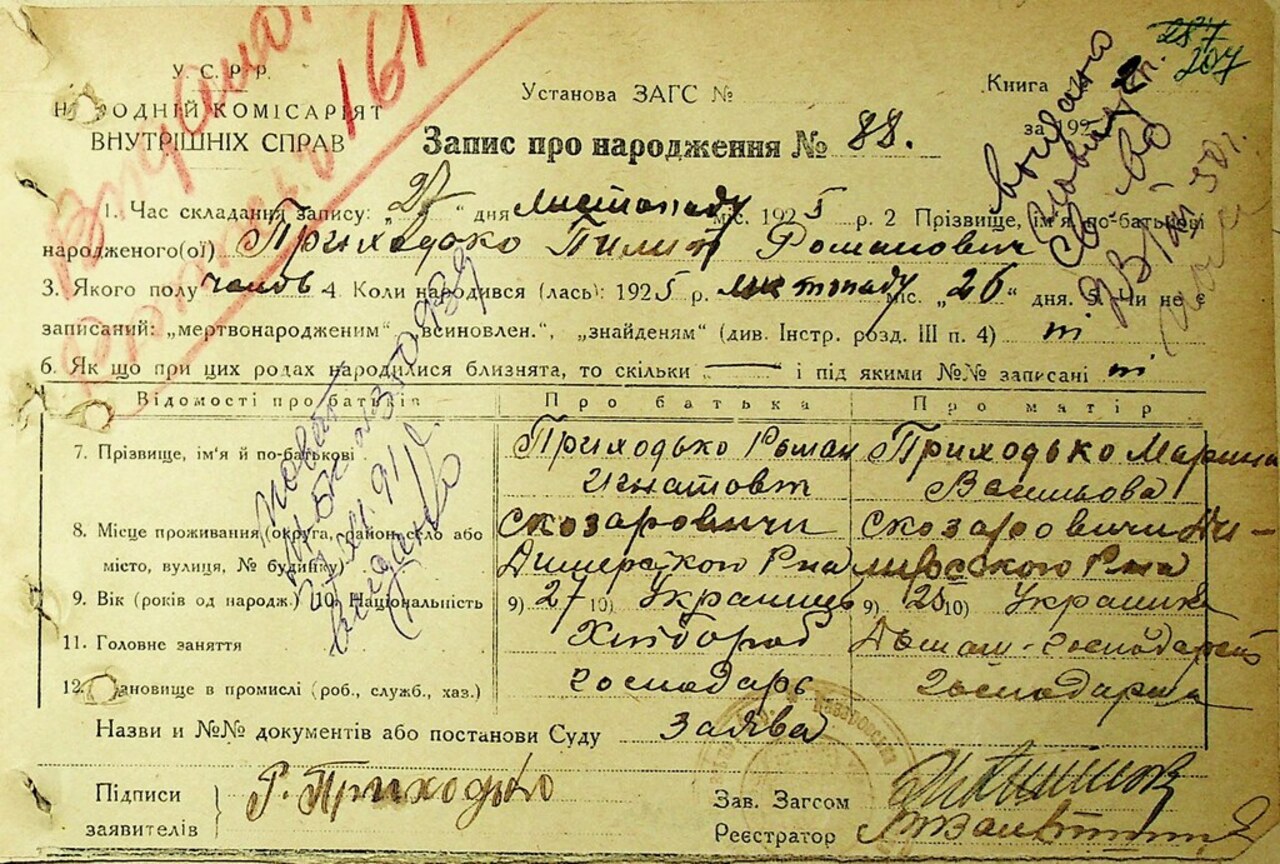 287
207
У. С. Р. Р.
НАРОДНІЙ КОМІСАРІЯТ
ВНУТРІШНІХ СПРАВ
161
Установа ЗАГС №
Книга 2
за 192
Запис про народження № 88.
1. Час складання запису: „27“ дня листопаду міс. 1925 р. 2 Прізвище, ім'я, по-батькові
народженого(ої) Приходько Пилип Романович
3. Якого полу 4. Коли народився (лась): 1925 р. листопаду міс. „26“ дня. 5. Чи не є
записаний: „мертвонародженим“ „всиновлен.“, „знайденям“ (див. Інстр. розд. III п. 4) ні
6. Як що при цих родах народилися близнята, то скільки „—“ і під якими №№ записані ні
Відомості про батьків Про батька Про матір
7. Прізвище, ім'я й по-батькові Приходько Роман Приходько Марина
Васильова
8. Місце проживання (округа, район, село або с Козаровичи с Козаровичи Ди-
місто, вулиця, № будинку) Димерського Р-на мирського Р-на
9. Вік (років од народж.) 10. Національність 9) 27 10) Украінець 9) 25 10) Украинка
11. Головне заняття Хлібороб Домаш-господарств
12. Становище в промислі (роб., служб., хаз.) господарь господарка
Назви и №№ документів або постанови Суду заява
Підписи
заявителів
Р. Приходько
Зав. Загсом
Реєстратор